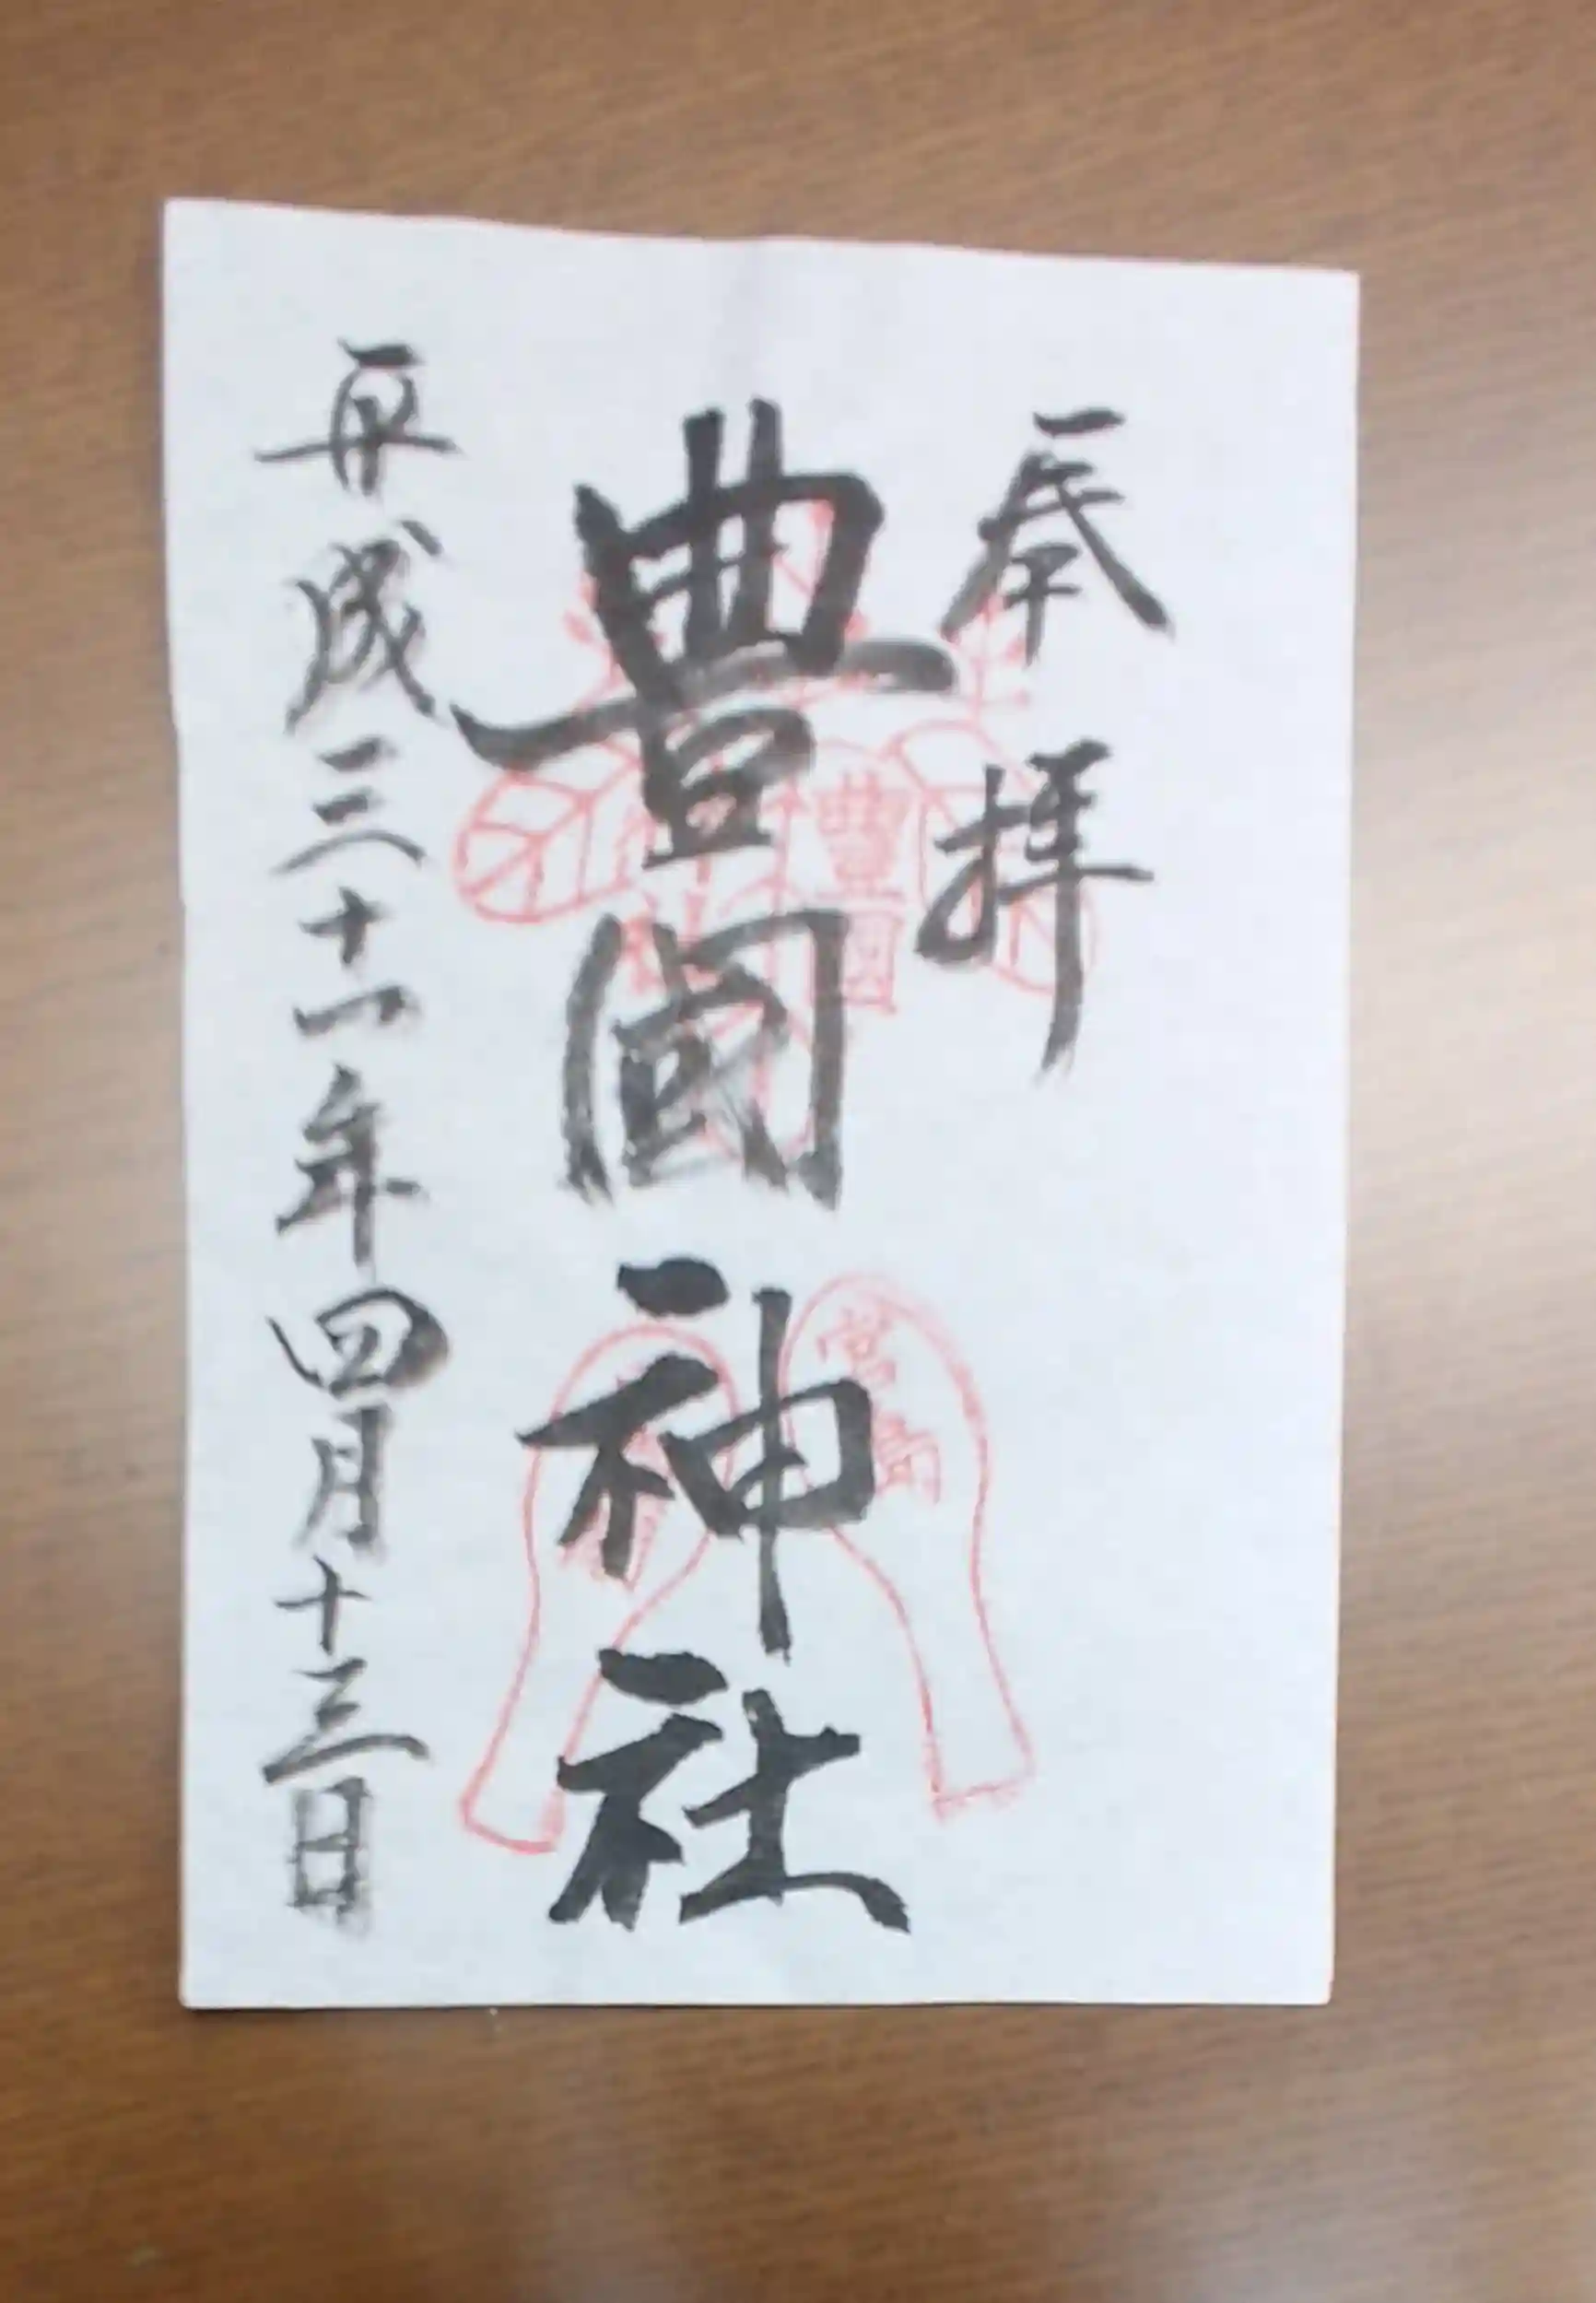 奉拝
豊國神社
平成三十一年四月十三日
豊國